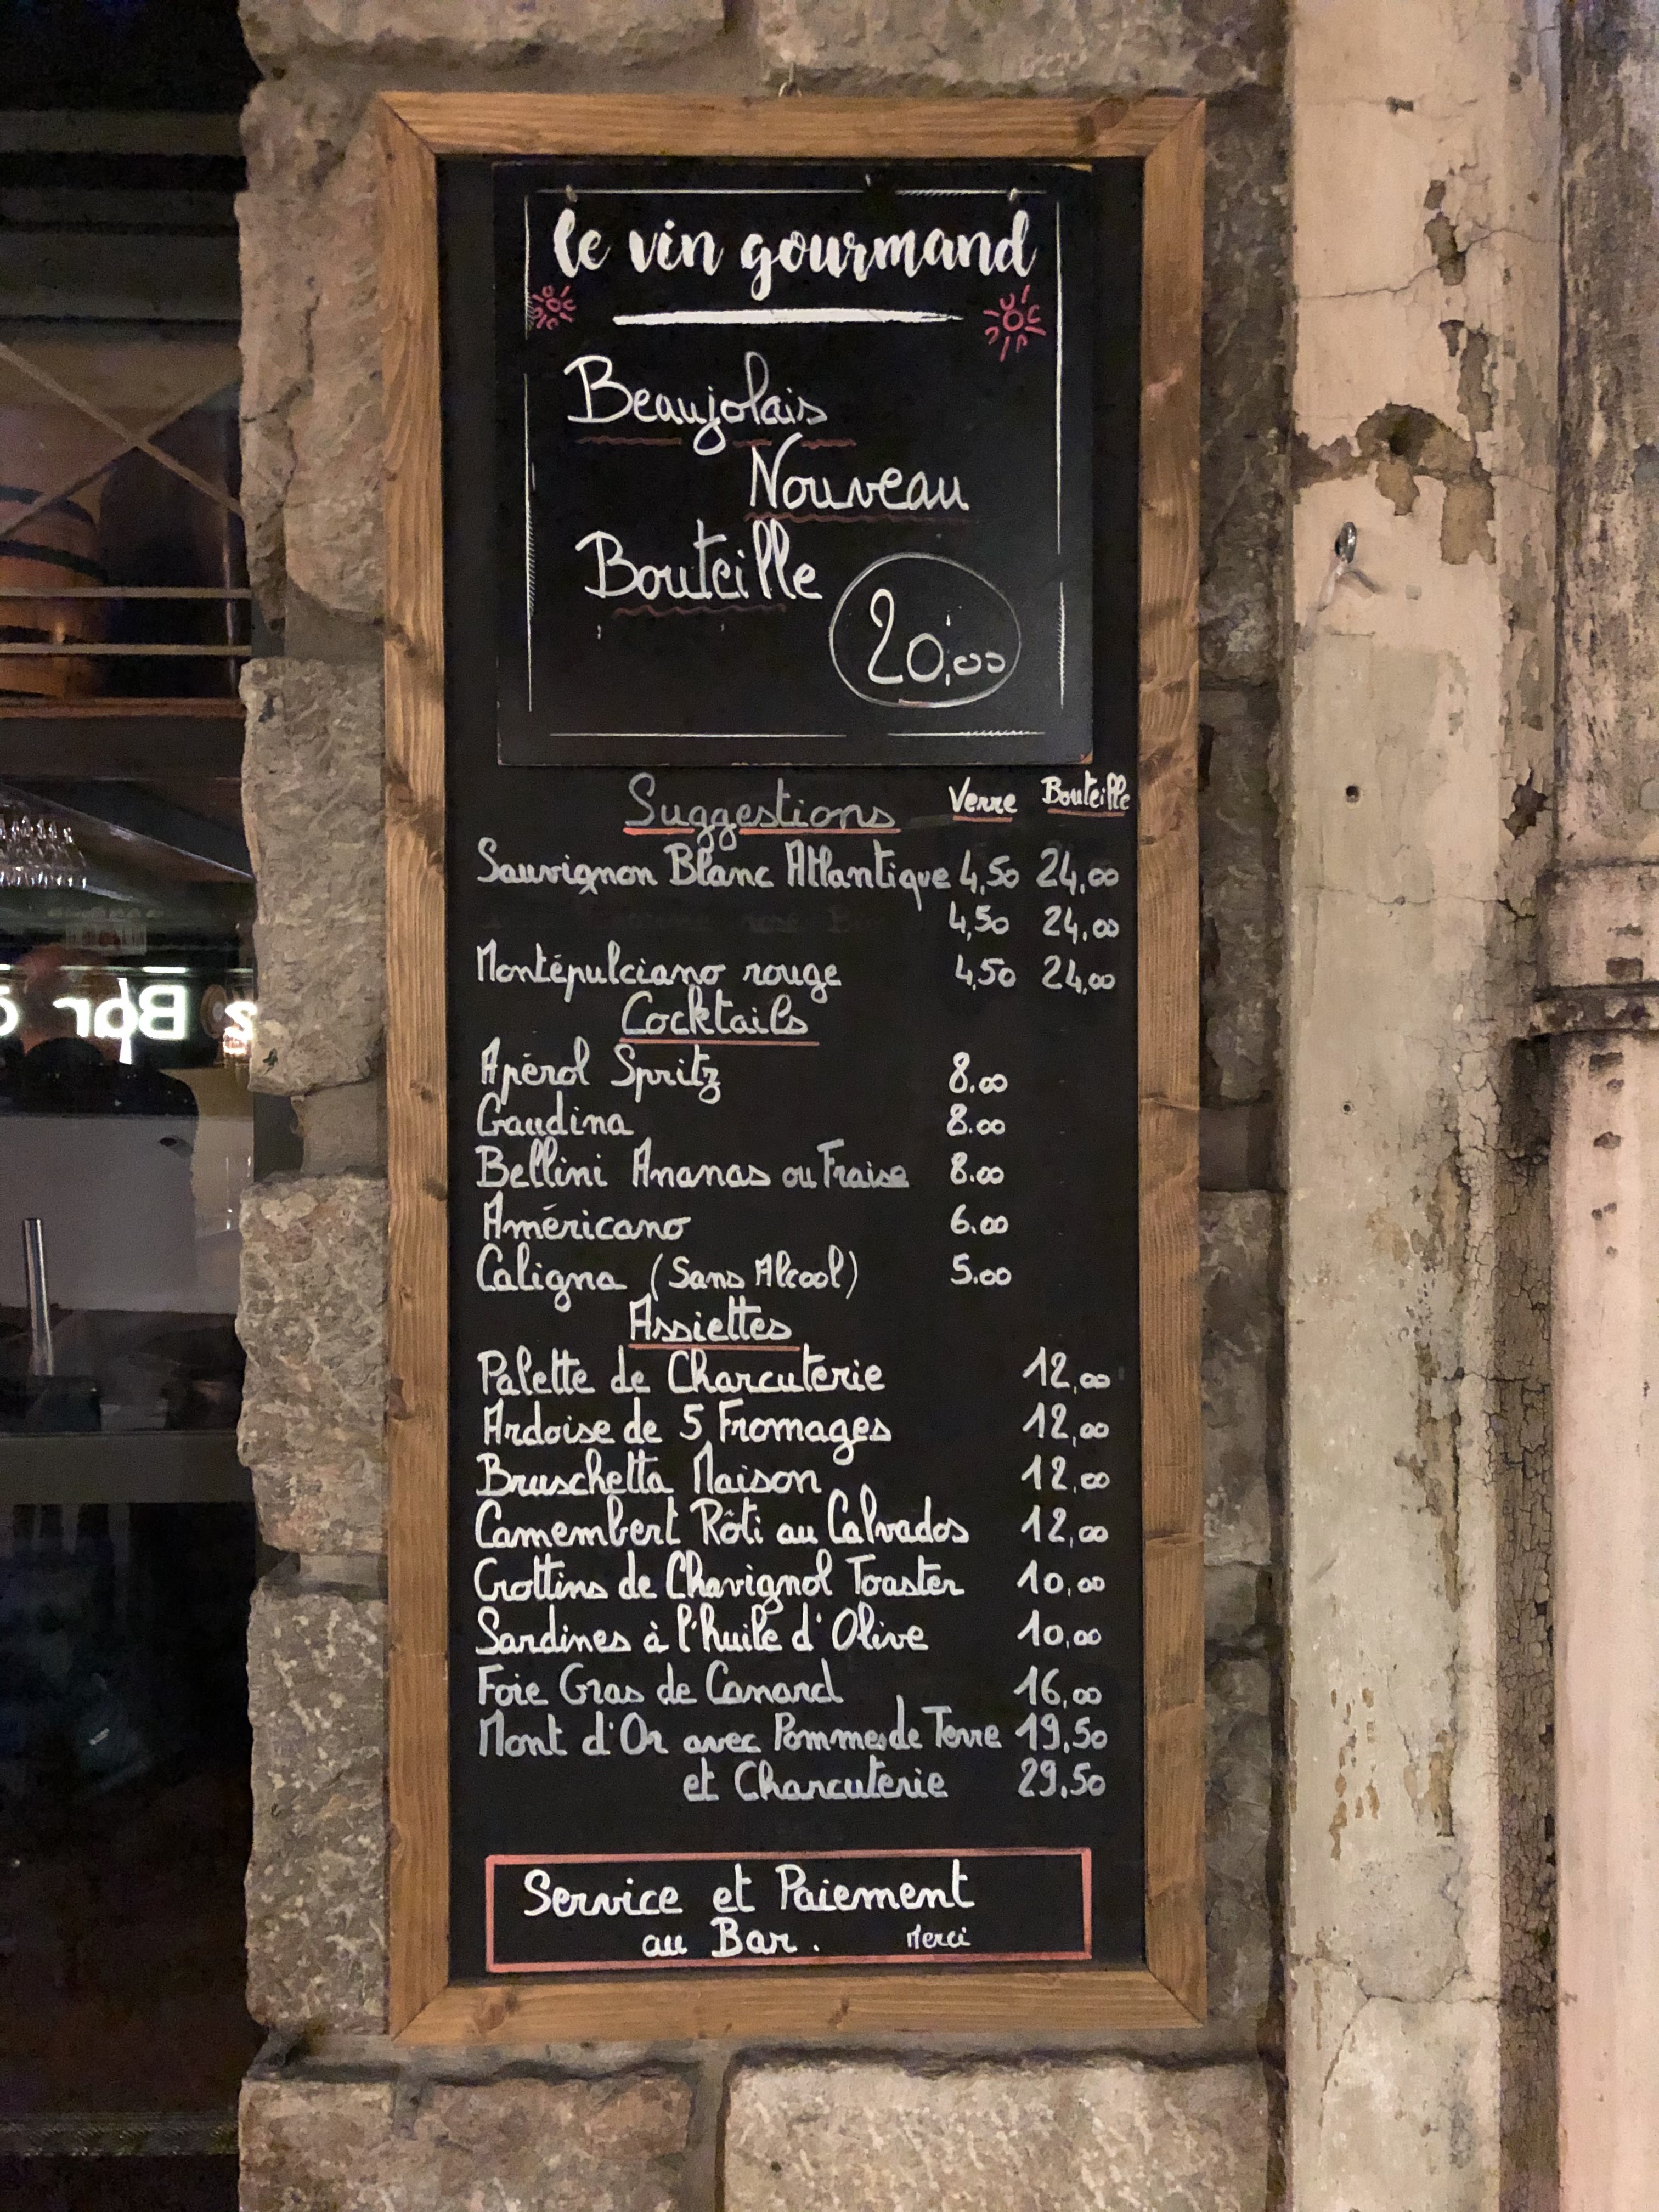 le vin gourmand
Beaujolais
Nouveau
Bouteille
20,00
Suggestions Verre Bouteille
Sauvignon Blanc Atlantique 4,50 24,00
4,50 24,00
Montépulciano rouge 4,50 24,00
Cocktails
Apérol Spritz 8.00
Gaudina 8.00
Bellini Ananas ou Fraise 8.00
Américano 6.00
Caligna (Sans Alcool) 5.00
Assiettes
Palette de Charcuterie 12,00
Ardoise de 5 Fromages 12,00
Bruschetta Maison 12,00
Camembert Rôti au Calvados 12,00
Crottins de Chavignol Toaster 10,00
Sardines à l'huile d'Olive 10,00
Foie Gras de Canard 16,00
Mont d'Or avec Pommes de Terre 19,50
et Charcuterie 29,50
Service et Paiement
au Bar. Merci
Bar